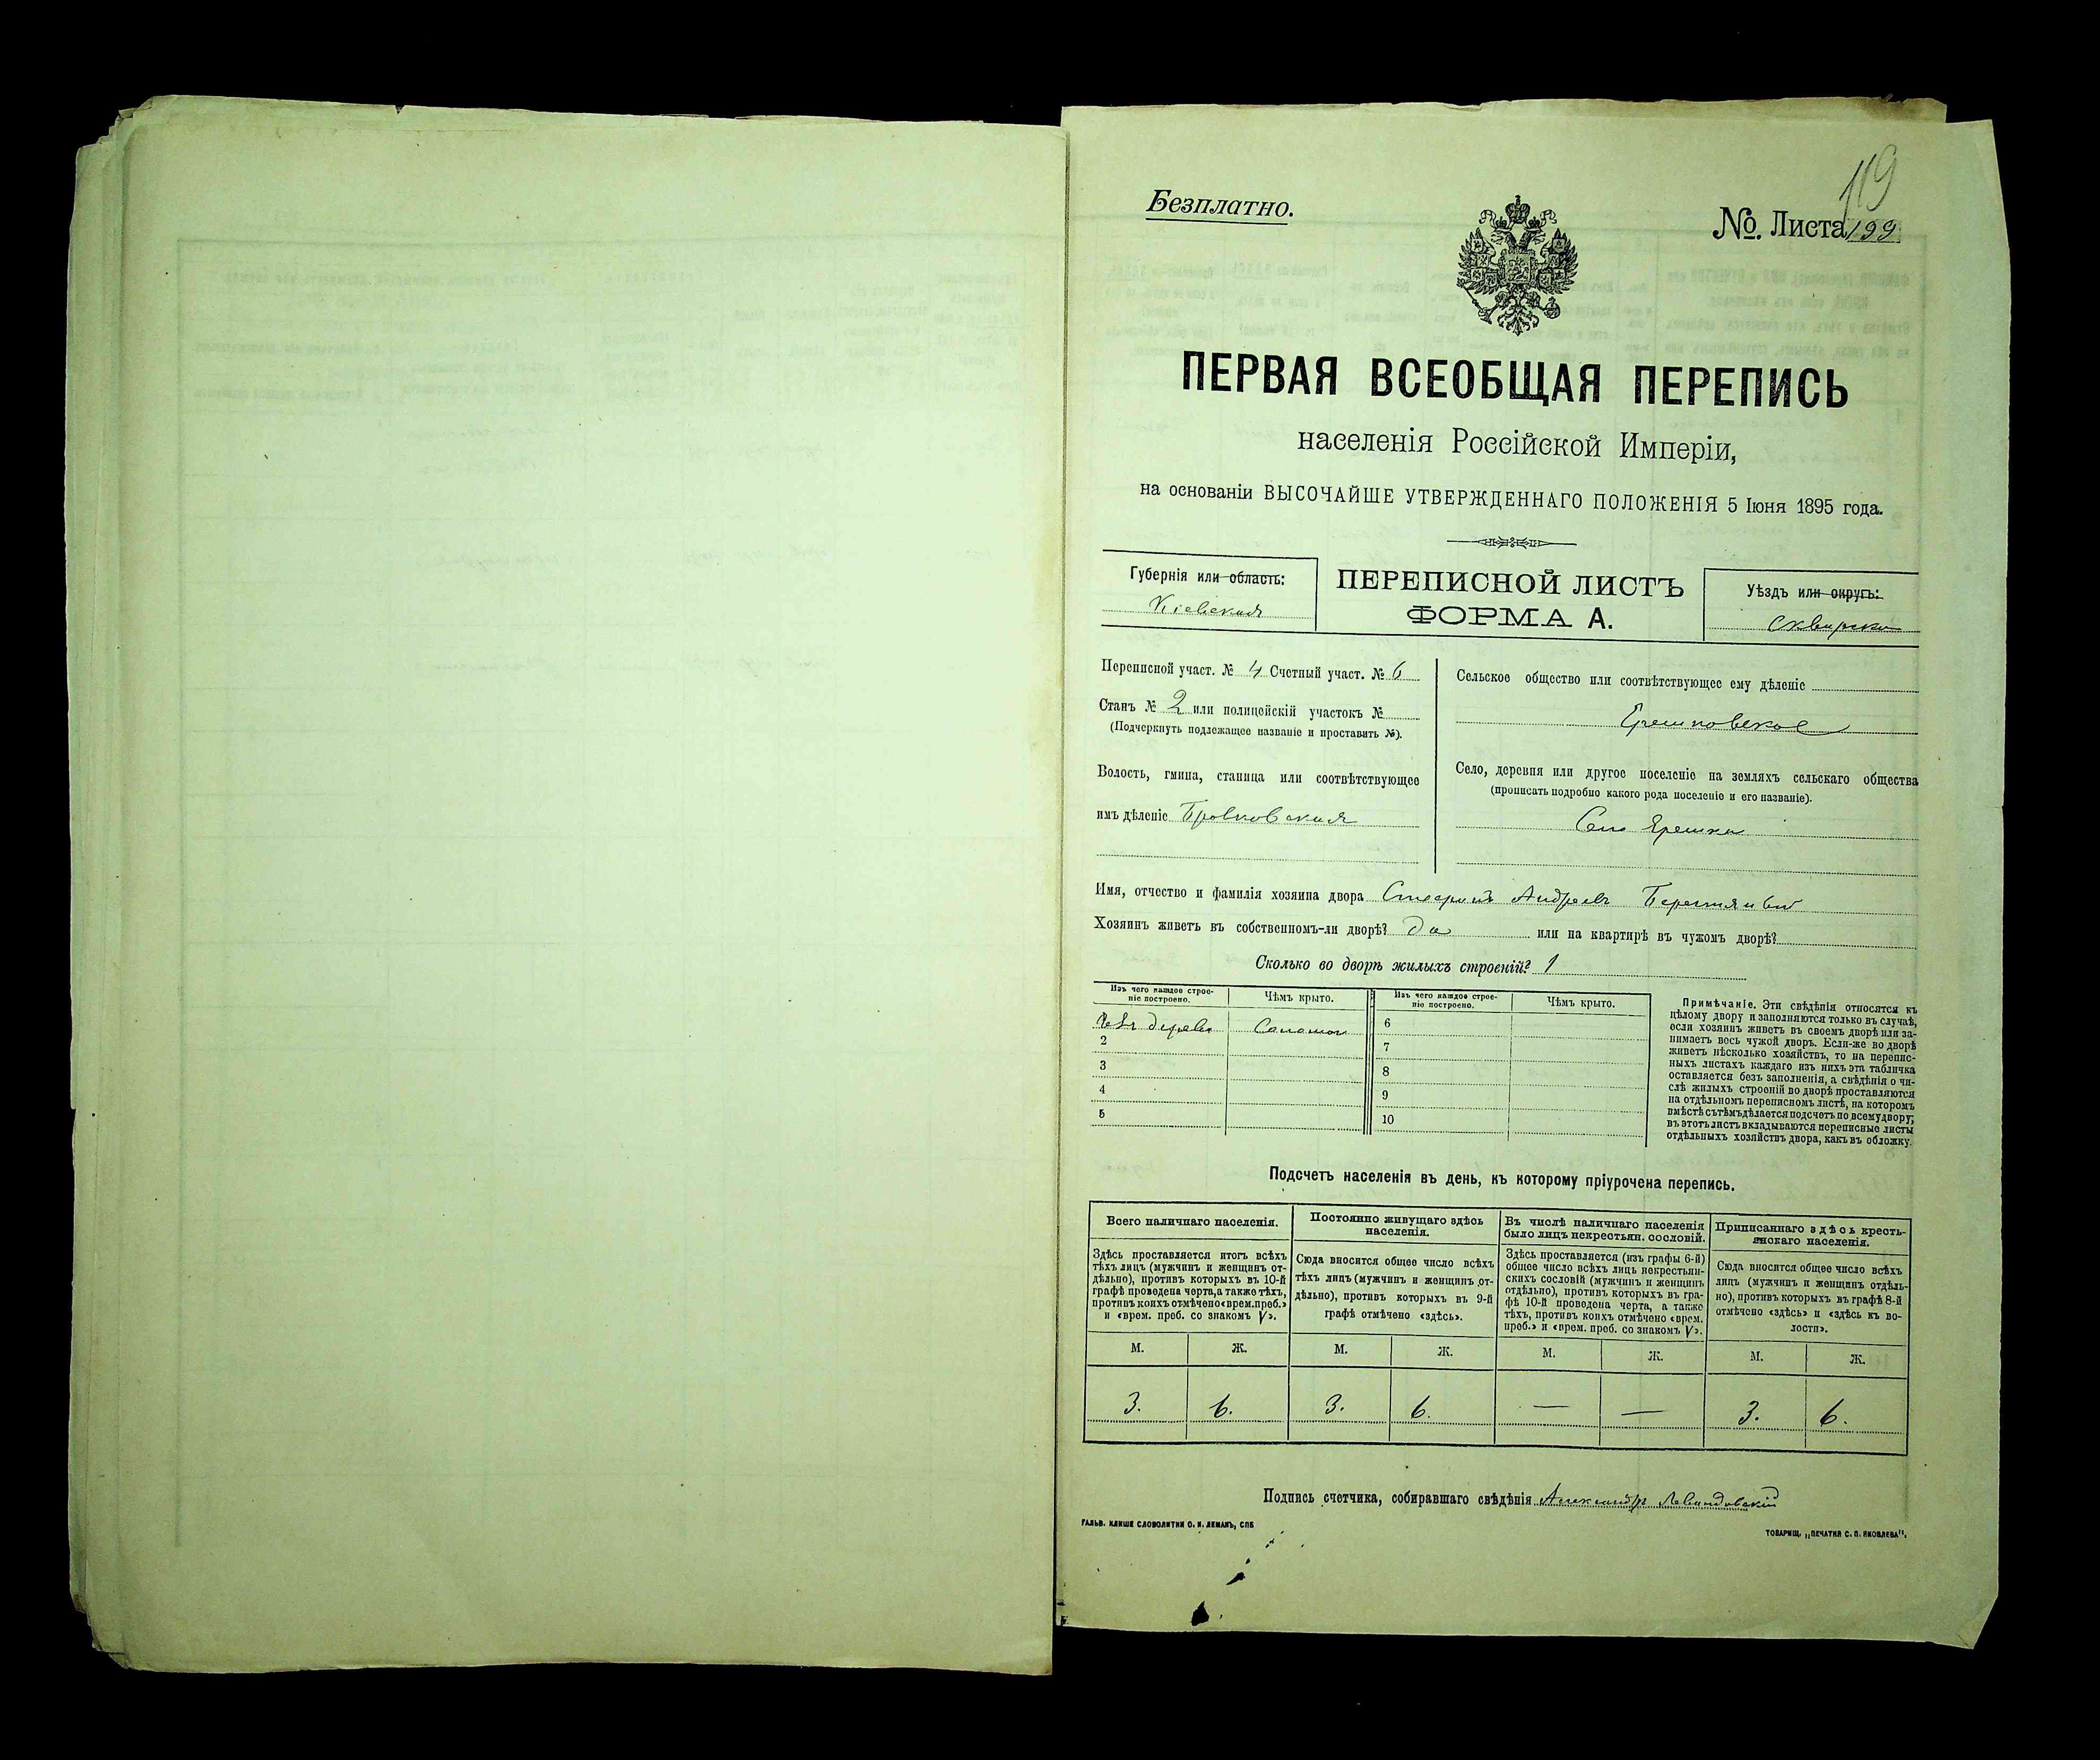 119
Безплатно.
№ Листа 199.
ПЕРВАЯ ВСЕОБЩАЯ ПЕРЕПИСЬ
населенія Россійской Имперіи,
на основаніи ВЫСОЧАЙШЕ УТВЕРЖДЕННАГО ПОЛОЖЕНІЯ 5 Іюня 1895 года.
Губернія или область:
Кіевская
ПЕРЕПИСНОЙ ЛИСТЪ
ФОРМА А.
Уѣздъ или округъ:
Сквирскій
Переписной участ. № 4 Счетный участ. № 6
Станъ № 2 или полицейскій участокъ №
(Подчеркнуть подлежащее названіе и проставить №).
Волость, гмина, станица или соотвѣтствующее
имъ дѣленіе Бровковская
Сельское общество или соотвѣтствующее ему дѣленіе
Ерешковское
Село, деревня или другое поселеніе на земляхъ сельскаго общества
(прописать подробно какого рода поселеніе и его названіе).
Село Ерешки
Имя, отчество и фамилія хозяина двора Андреевъ
Хозяинъ живетъ въ собственномъ-ли дворѣ? Да или на квартирѣ въ чужомъ дворѣ?
Сколько во дворѣ жилыхъ строеній? 1
Изъ чего каждое строе-
ніе построено.
Чѣмъ крыто.
Изъ чего каждое строе-
ніе построено.
Чѣмъ крыто.
Изъ дерева Соломою 6
2 7
3 8
4 9
5 10
Примѣчаніе. Эти свѣдѣнія относятся къ
цѣлому двору и заполняются только въ случаѣ,
если хозяинъ живетъ въ своемъ дворѣ или за-
нимаетъ весь чужой дворъ. Если-же во дворѣ
живетъ нѣсколько хозяйствъ, то на перепис-
ныхъ листахъ каждаго изъ нихъ эта табличка
оставляется безъ заполненія, а свѣдѣнія о чи-
слѣ жилыхъ строеній во дворѣ проставляются
на отдѣльномъ переписномъ листѣ, на которомъ
вмѣстѣ съ тѣмъ дѣлается подсчетъ по всему двору;
въ этотъ листъ вкладываются переписные листы
отдѣльныхъ хозяйствъ двора, какъ въ обложку.
Подсчетъ населенія въ день, къ которому пріурочена перепись.
Всего наличнаго населенія.
Здѣсь проставляется итогъ всѣхъ
тѣхъ лицъ (мужчинъ и женщинъ от-
дѣльно), противъ которыхъ въ 10-й
графѣ проведена черта, а также тѣхъ,
противъ коихъ отмѣчено «врем. преб.»
и «врем. преб. со знакомъ V».
Постоянно живущаго здѣсь
населенія.
Сюда вносится общее число всѣхъ
тѣхъ лицъ (мужчинъ и женщинъ от-
дѣльно), противъ которыхъ въ 9-й
графѣ отмѣчено «здѣсь».
Въ числѣ наличнаго населенія
было лицъ некрестьян. сословій.
Здѣсь проставляется (изъ графы 6-й)
общее число всѣхъ лицъ некрестьян-
скихъ сословій (мужчинъ и женщинъ
отдѣльно), противъ которыхъ въ гра-
фѣ 10-й проведена черта, а также
тѣхъ, противъ коихъ отмѣчено «врем.
преб.» и «врем. преб. со знакомъ V».
Приписаннаго здѣсь кресть-
янскаго населенія.
Сюда вносится общее число всѣхъ
лицъ (мужчинъ и женщинъ отдѣль-
но), противъ которыхъ въ графѣ 8-й
отмѣчено «здѣсь» и «здѣсь къ во-
лости».
М. Ж. М. Ж. М. Ж. М. Ж.
3. 6. 3. 6. — — 3. 6.
Подпись счетчика, собиравшаго свѣдѣнія Александръ Левандовскій
ГАЛЬВ. КЛИШЕ СЛОВОЛИТНИ О. И. ЛЕМАНЪ, СПБ
ТОВАРИЩ. „ПЕЧАТНЯ С. П. ЯКОВЛЕВА".